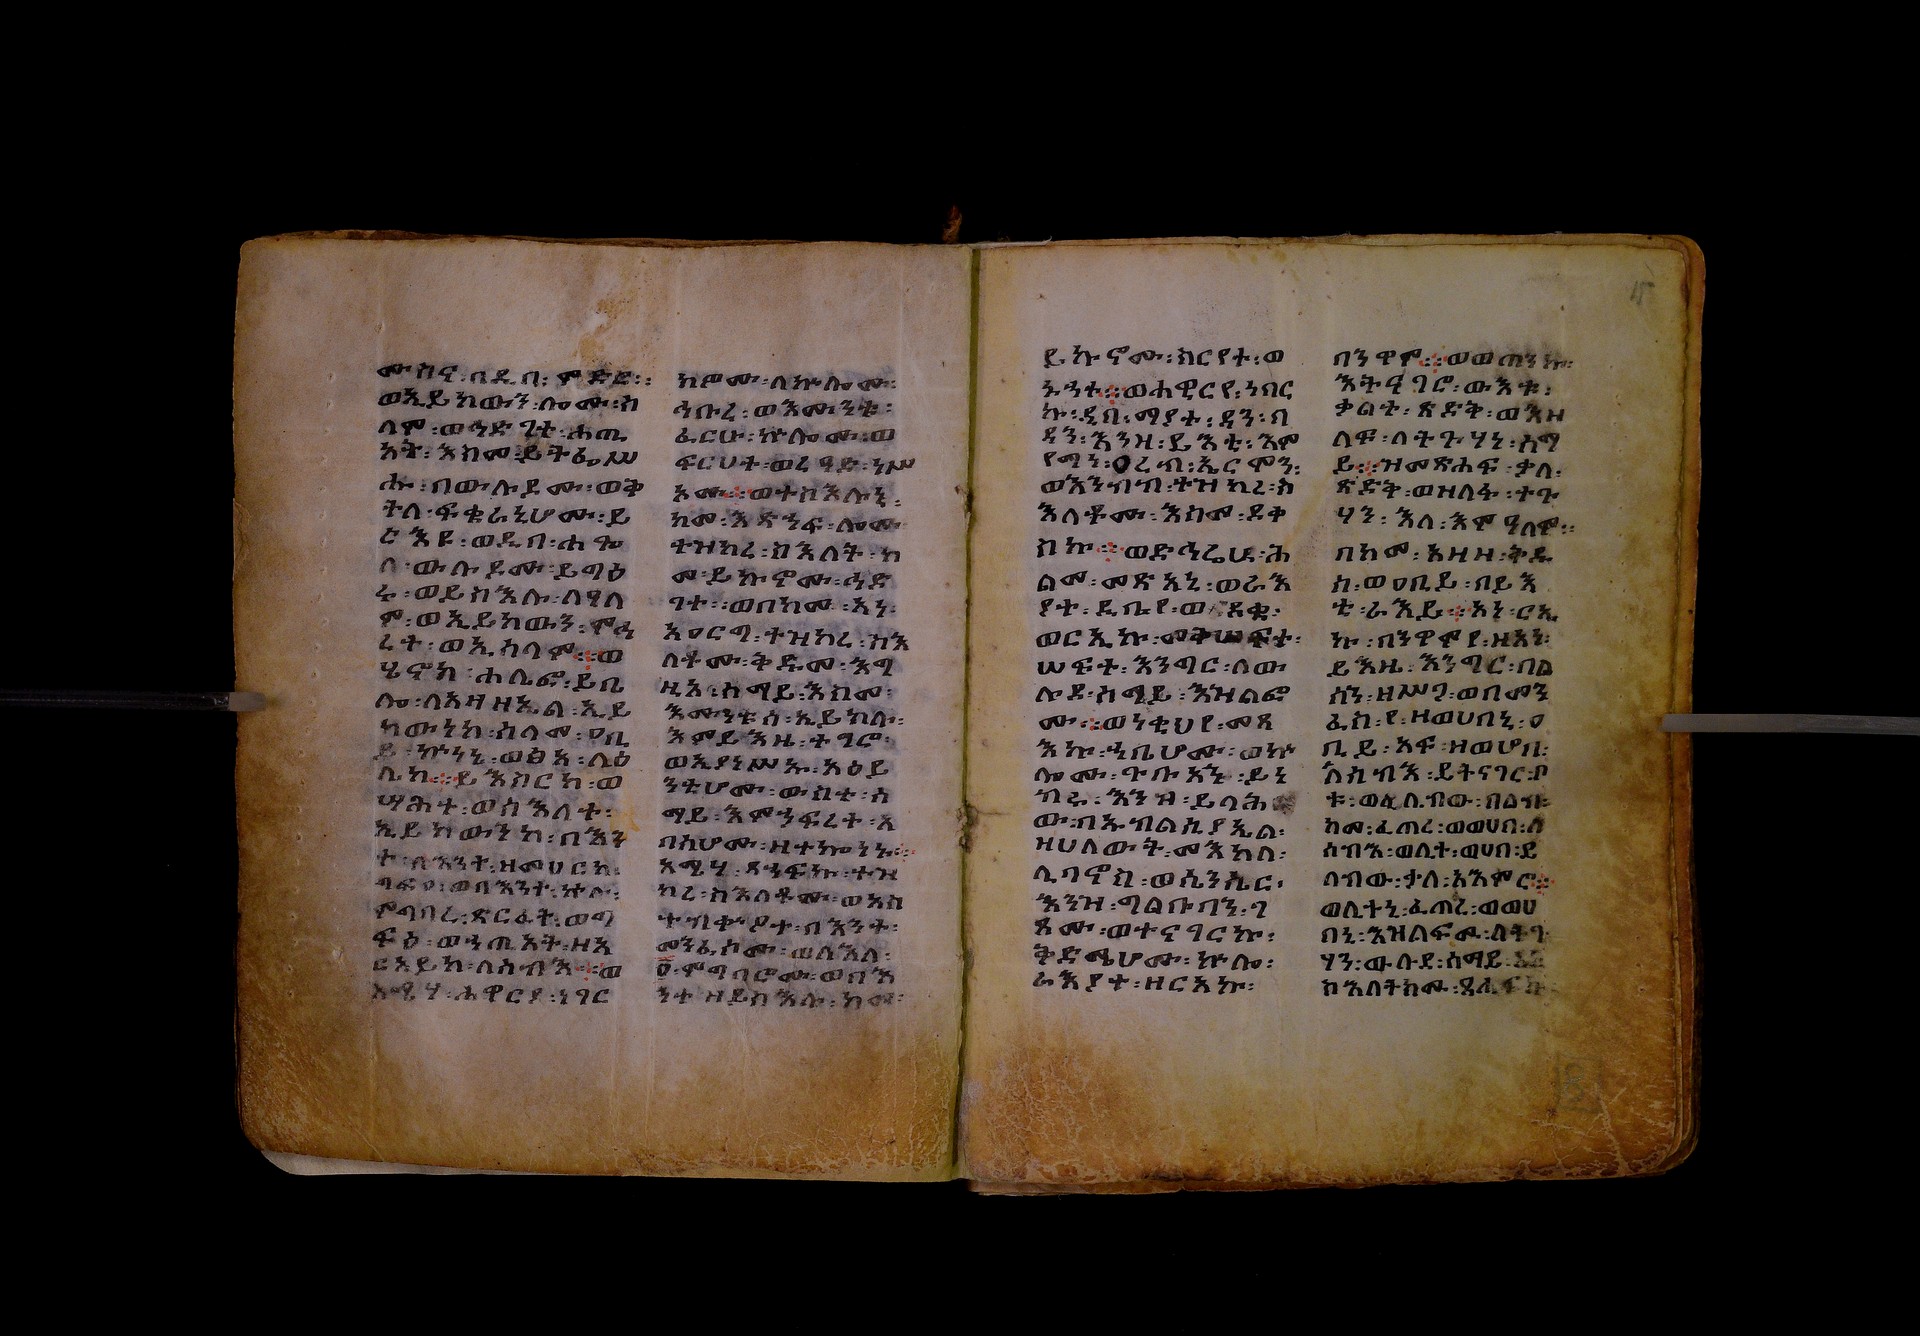 ሙስና፡በዲበ፡ምድር፡፡
ወኢይከውን፡ሎሙ፡ሰ
ላም፡ወኅድገተ፡ሐጢ
አት፡እስመ፡ይትፌሥ
ሑ፡በውሉዶሙ፡ወቅ
ትለ፡ፍቁራኒሆሙ፡ይ
ሬእዩ፡ወዲበ፡ሐጕ
ለ፡ውሉዶሙ፡ይግዕ
ሩ፡ወይስእሉ፡ለዓለ
ም፡ወኢይከውን፡ምሕ
ረት፡ወኢሰላም፡፡ወ
ሄኖክ፡ሐሊፎ፡ይቤ
ሎ፡ለአዛዝኤል፡ኢይ
ከውነከ፡ሰላመ፡ዐቢ
ይ፡ኵነኔ፡ወፅአ፡ላዕ
ሌከ፡፡ይእስርከ፡ወ
ሣሕተ፡ወስእለት፡
ኢይከውንከ፡በእን
ተ፡ለእንተ፡ዘመሀርከ፡
ግፍዐ፡ወበእንተ፡ኵሉ፡
ምግባረ፡ጽርፈት፡ወግ
ፍዕ፡ወኃጢአት፡ዘአ
ርአይከ፡ለሰብእ፡፡ወ
አሜሃ፡ሐዋርየ፡ነገር
ክዎሙ፡ለኵሎሙ፡
ኅቡረ፡ወእሙንቱ፡
ፈርሁ፡ኵሎሙ፡ወ
ፍርሀት፡ወረዓድ፡ነሥ
አሙ፡፡ወተስእሉኒ፡
ከመ፡እጽሐፍ፡ሎሙ
ተዝካረ፡ስእለት፡ከ
መ፡ይኩኖሙ፡ኅድ
ገተ፡፡ወበከመ፡አነ፡
አዐርግ፡ተዝካረ፡ስእ
ለቶሙ፡ቅድመ፡እግ
ዚአ፡ሰማይ፡እስመ፡
እሙንቱሰ፡ኢይክሉ፡
እምይእዜ፡ተናግሮ፡
ወኢያነሥኡ፡አዕይ
ንቲሆሙ፡ውስተ፡ሰ
ማይ፡እምኃፍረት፡አ
በሳሆሙ፡ዘተኰነኑ፡፡
አሜሃ፡ጸሐፍኩ፡ተዝ
ካረ፡ስእለቶሙ፡ወአስ
ተብቍዖተ፡በእንተ፡
መንፈሶሙ፡ወለእለ፡
፩፡ምግባሮሙ፡ወበእ
ንተ፡ዘይስእሉ፡ከመ፡
ይኩኖሙ፡ስርየተ፡ወ
ኑኃተ፡፡ወሐዊርየ፡ነበር
ኩ፡ዲበ፡ማያተ፡ዳን፡በ
ዳን፡እንዘ፡ይእቲ፡እም
የማነ፡ዐረብ፡ኤርሞን፡
ወእንብብ፡ተዝካረ፡ስ
እለቶሙ፡እስከ፡ደቀ
ስኩ፡፡ወድኅሬሁ፡ሕ
ልመ፡መጽአኒ፡ወራእ
ያት፡ዲቤየ፡ወድቁ፡
ወርኢኩ፡መቅሠፍተ፡
ሠፍተ፡እንግር፡ለው
ሉደ፡ሰማይ፡እዝልፎ
ሙ፡፡ወነቂህየ፡መጻ
እኩ፡ኀቤሆሙ፡ወኵ
ሎሙ፡ጉቡአን፡ይነ
ብሩ፡እንዘ፡ይላሕ
ው፡በኡብልስያኤል፡
ዘሀለወት፡መእከለ፡
ሊባኖስ፡ወሴኔሴር፡
እንዘ፡ግልቡባን፡ገ
ጾሙ፡ወተናገርኩ፡
ቅድሜሆሙ፡ኵሎ፡
ራእያተ፡ዘርኢኩ፡
በንዋም፡፡ወወጠንኩ፡
እትናገሮ፡ውእቱ፡
ቃልተ፡ጽድቅ፡ወእዘ
ለፍ፡ለትጉሃነ፡ሰማ
ይ፡፡ዝመጽሐፍ፡ቃለ፡
ጽድቅ፡ወዘለፋ፡ትጉ
ሃን፡እለ፡እምዓለም፡፡
በከመ፡አዘዘ፡ቅዱ
ስ፡ወዐቢይ፡በይእ
ቲ፡ራእይ፡፡አነ፡ርኢ
ኩ፡በንዋምየ፡ዘአነ፡
ይእዜ፡እነግር፡በል
ሳን፡ዘሥጋ፡ወበመን
ፈስየ፡ዘወሀበኒ፡ዐ
ቢይ፡አፍ፡ዘወሀበ፡
ለሰብእ፡ይትናገር፡ቦ
ቱ፡ወይለብው፡በልብ፡
ከመ፡ፈጠረ፡ወወሀበ፡ለ
ሰብእ፡ወሊተ፡ወሀበ፡ይ
ለብው፡ቃለ፡አእምሮ፡፡
ወሊተኒ፡ፈጠረ፡ወወሀ
በኒ፡እዝልፎሙ፡ለትጉ
ሃን፡ውሉደ፡ሰማይ፡አነ
ስእለትክሙ፡ጸሐፍኩ፡